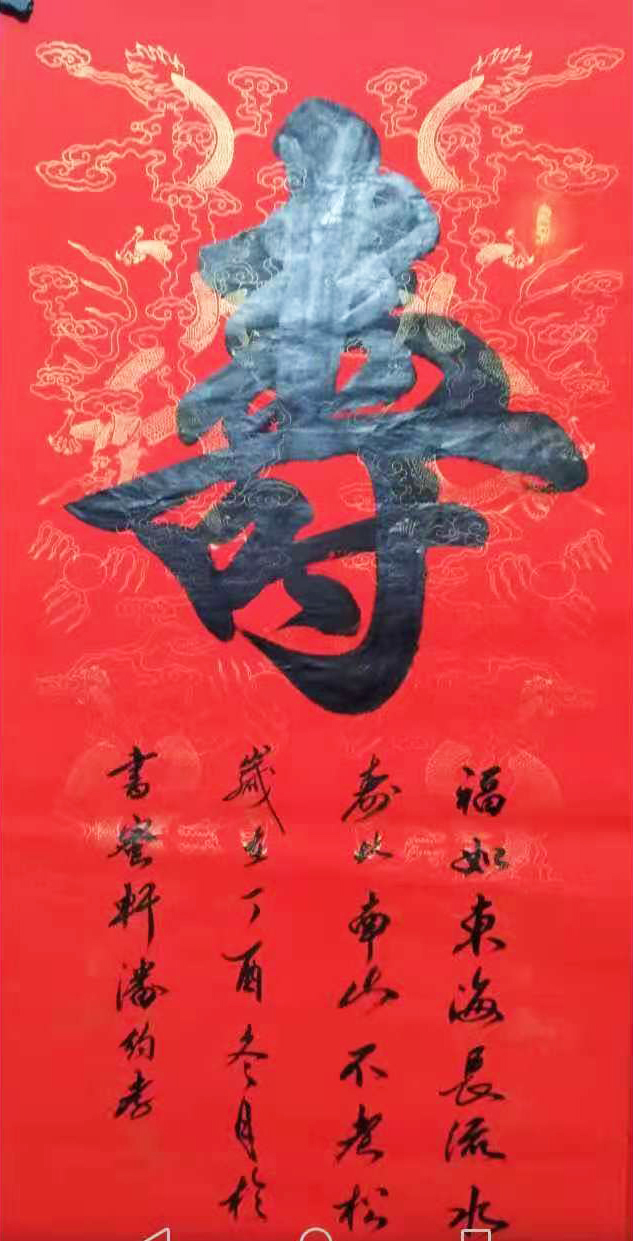 壽
福如東海長流水
壽比南山不老松
歲在丁酉冬月於
書蜜軒潘約書